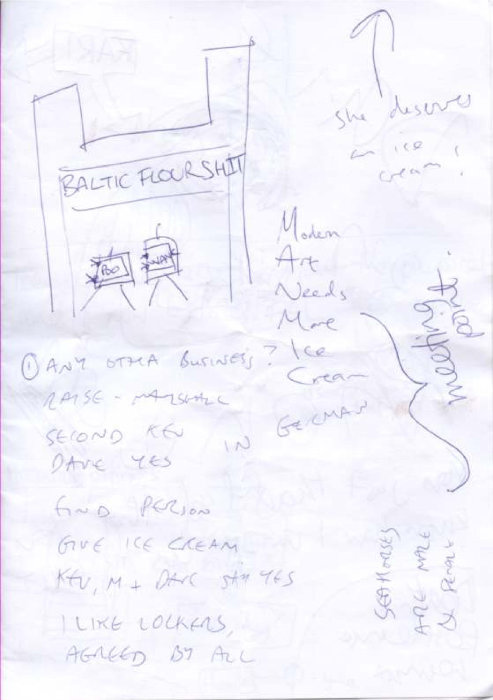 she deserves
an ice
cream!
BALTIC FLOURSHIT
POO
WANK
Modern
Art
Needs
More
Ice
Cream
meeting
point.
① ANY OTHA BUSINESS?
RAISE - MARSHALL
SECOND KEV
DAVE YES
IN GERMAN
FIND PERSON
GIVE ICE CREAM
KEV, M + DAVE SAY YES
I LIKE LOCKERS,
AGREED BY ALL
SEAHORSES
ARE MADE
PEOPLE
KARI